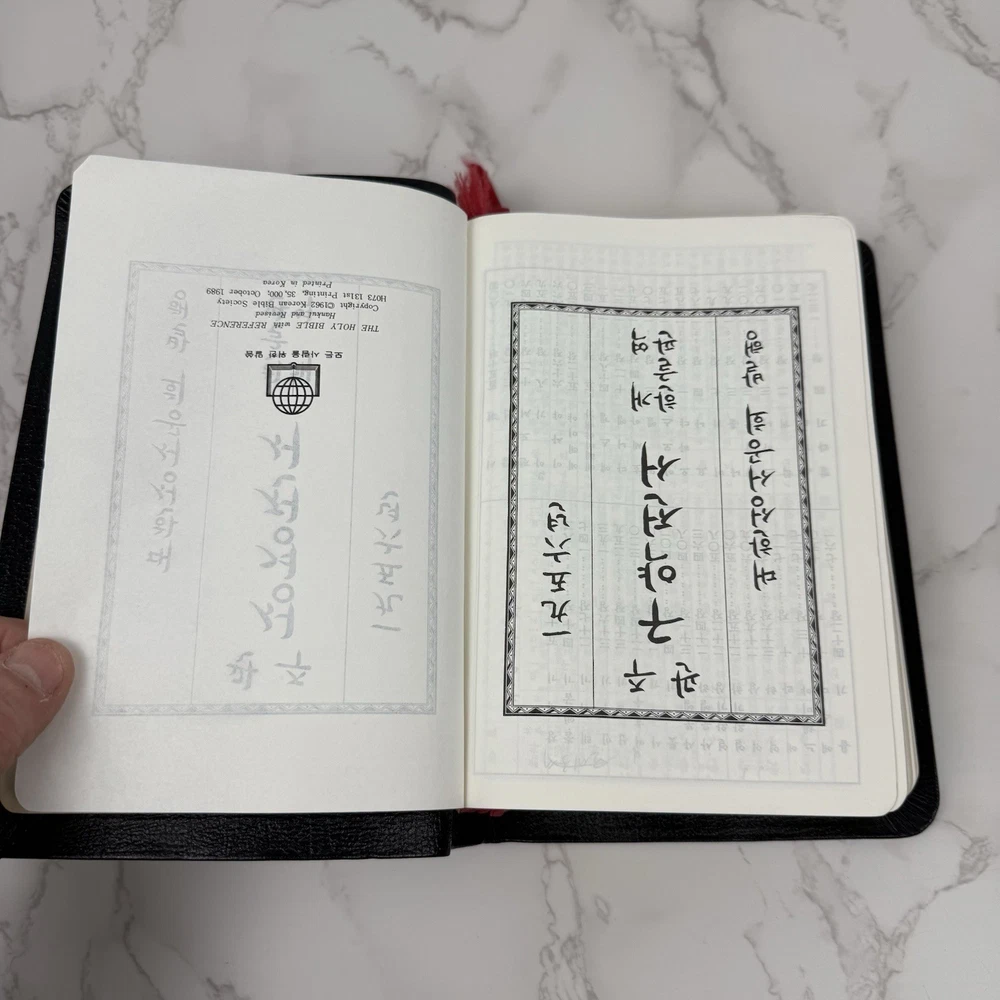 모든 사람을 위한 말씀
THE HOLY BIBLE with REFERENCE
Hankul and Revised
Copyright ©1962 Korean Bible Society
H073 131st Printing, 35,000; October 1989
Printed in Korea
一九五六년
관주 구약전서 개역 한글판
대한성서공회 발행